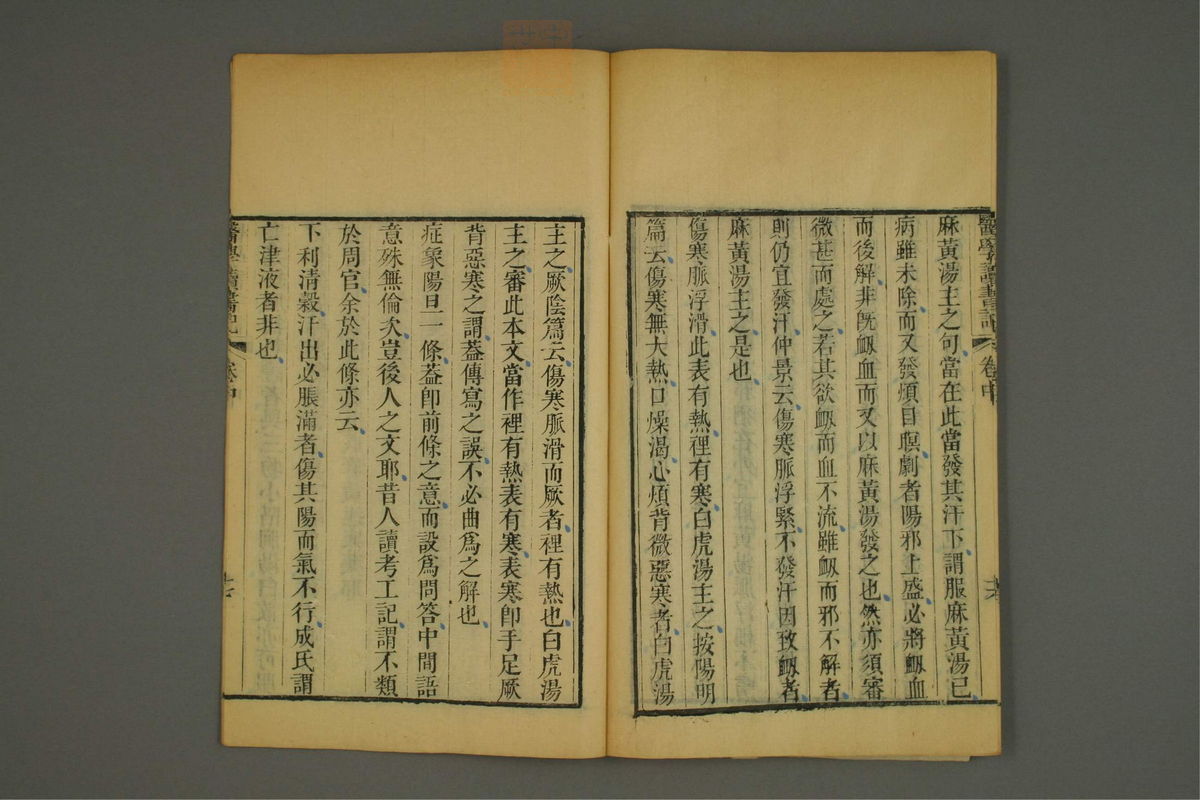 醫學讀書記 卷中
麻黃湯主之句當在此當發其汗下謂服麻黃湯已
病雖未除而又發煩目瞑劇者陽邪上盛必將衂血
而後解非旣衂血而又以麻黃湯發之也然亦須審
微甚而處之若其欲衂而血不流雖衂而邪不解者
則仍宜發汗仲景云傷寒脈浮緊不發汗因致衂者
麻黃湯主之是也
傷寒脈浮滑此表有熱裡有寒白虎湯主之按陽明
篇云傷寒無大熱口燥渴心煩背微惡寒者白虎湯
主之厥陰篇云傷寒脈滑而厥者裡有熱也白虎湯
主之審此本文當作裡有熱表有寒表寒卽手足厥
背惡寒之謂葢傳寫之誤不必曲爲之解也
症象陽旦一條葢卽前條之意而設爲問答中間語
意殊無倫次豈後人之文耶昔人讀考工記謂不類
於周官余於此條亦云
下利清穀汗出必脹滿者傷其陽而氣不行成氏謂
亡津液者非也
醫學讀書記 卷中